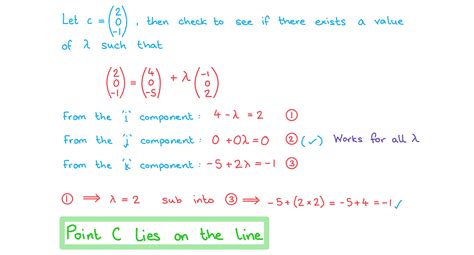 Let c = (2 0 -1) , then check to see if there exists a value
of λ such that
(2 0 -1) = (4 0 -5) + λ (-1 0 2)
From the 'i' component : 4 - λ = 2 ①
From the 'j' component : 0 + 0λ = 0 ② (✓) Works for all λ
From the 'k' component : -5 + 2λ = -1 ③
① ⟹ λ = 2 sub into ③ ⟹ -5 + (2×2) = -5 + 4 = -1 ✓
Point C lies on the line